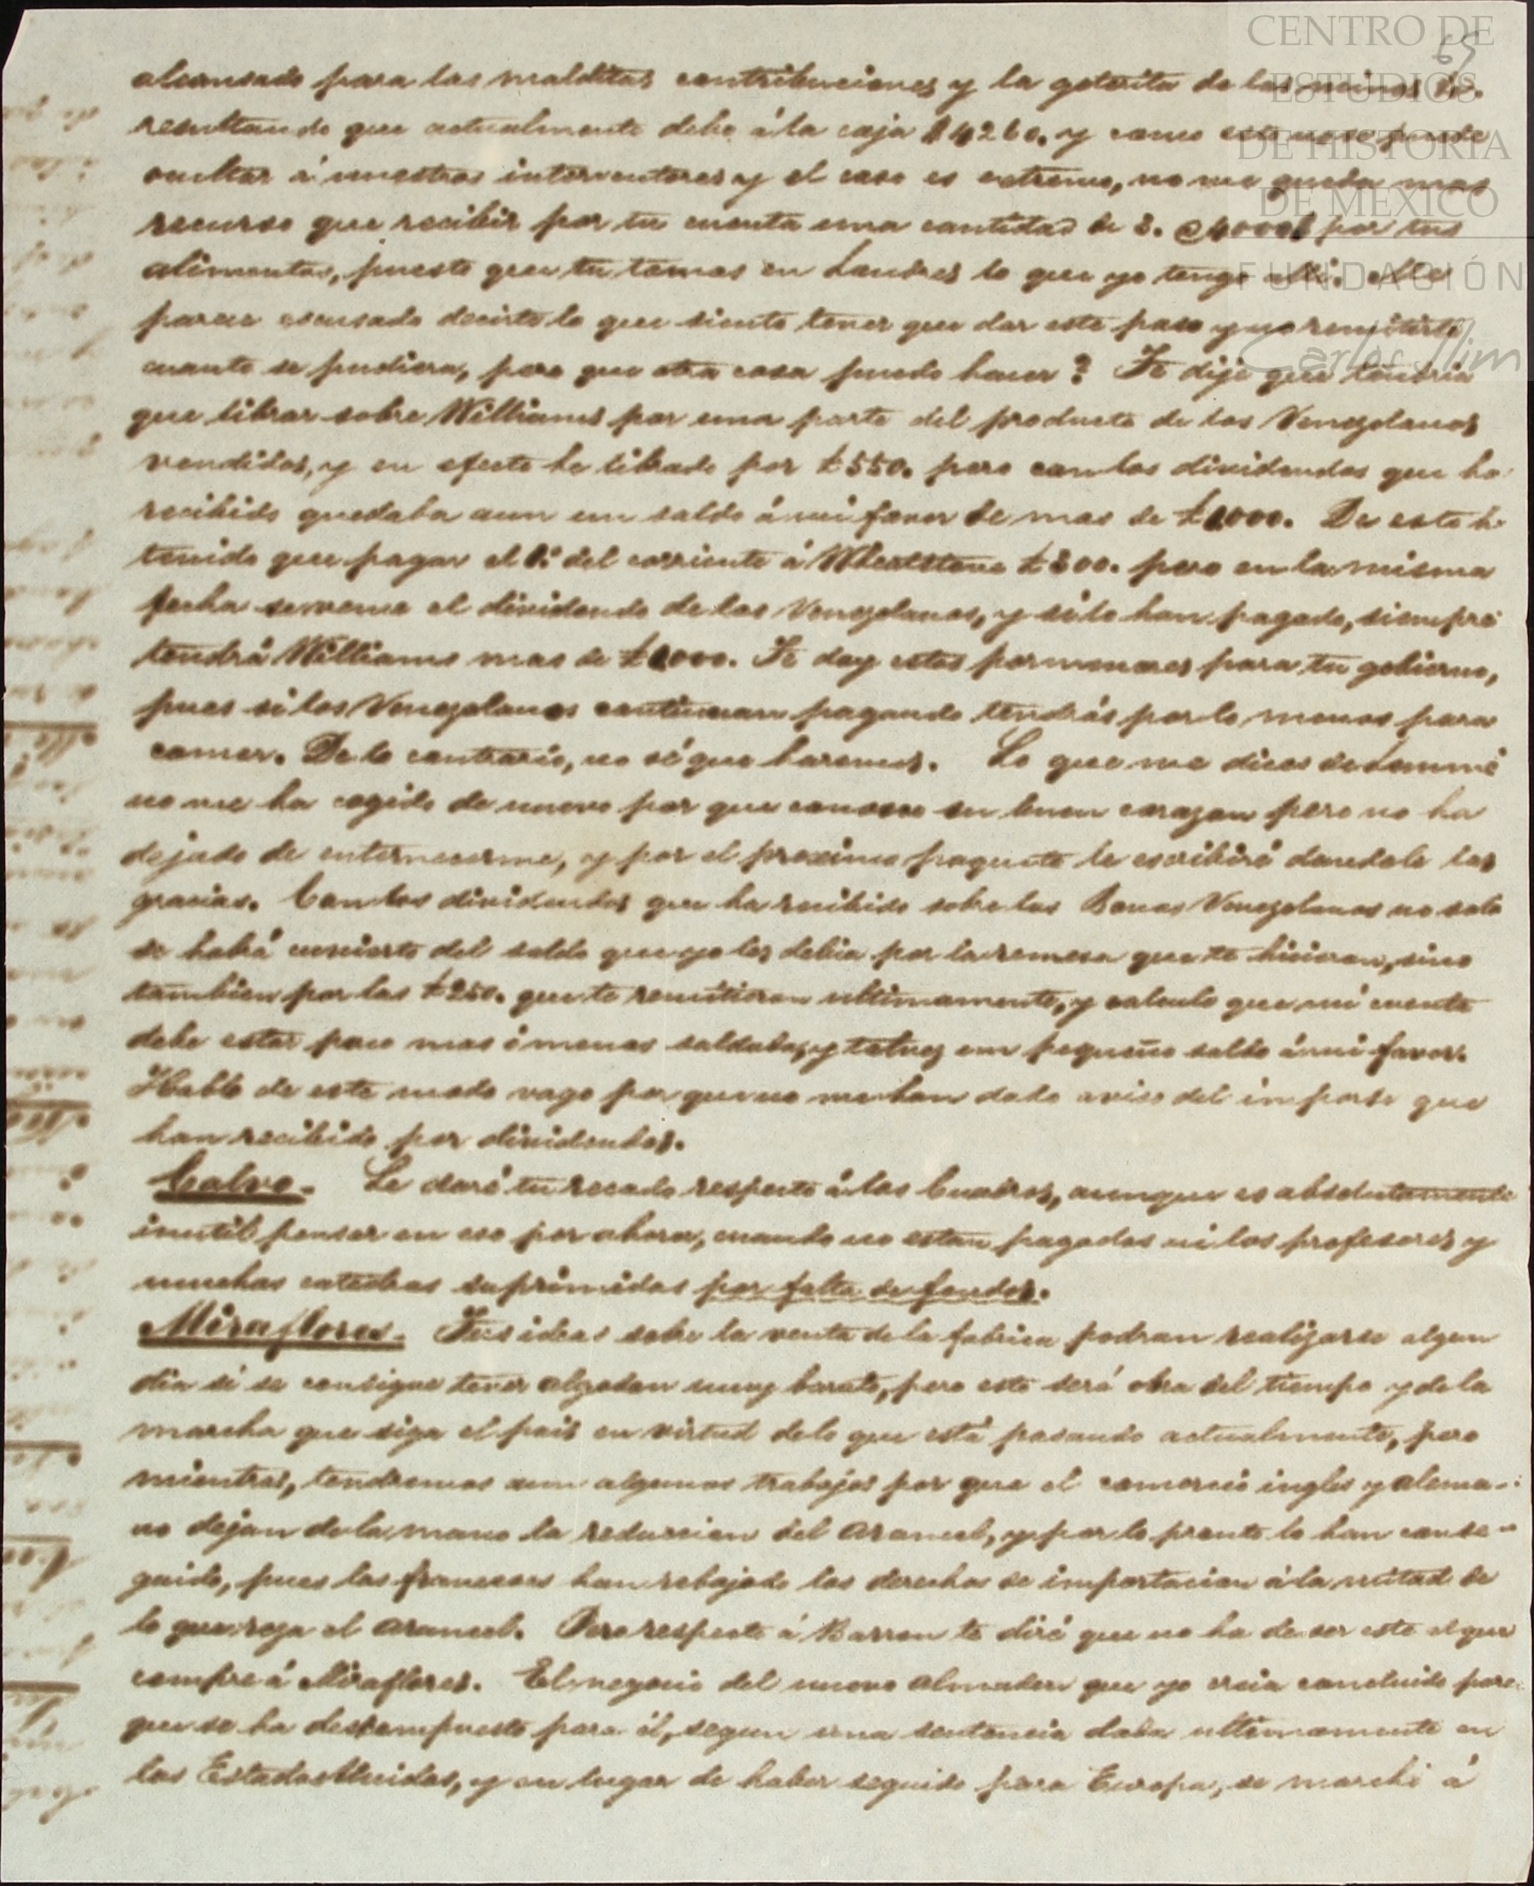 CENTRO DE
ESTUDIOS
DE HISTORIA
DE MEXICO
FUNDACIÓN
Carlos Slim
69
alcansado para las malditas contribuciones y la goterita de las minas &.
resultando que actualmente debo á la caja $4260. y como esto no se puede
ocultar á nuestros interventores y el caso es extremo, no me queda mas
recurso que recibir por tu cuenta una cantidad de $. 4000 por tus
alimentos, puesto que tu tomas en Londres lo que yo tengo alli. Me
parece escusado decirte lo que siento tener que dar este paso y no remitirte
cuanto se pudiera, pero que otra cosa puedo hacer? Te dije que tendria
que librar sobre Williams por una parte del producto de los Venezolanos
vendidos, y en efecto he librado por £550. pero con los dividendos que ha
recibido quedaba aun un saldo á mi favor de mas de £1000. De esto he
tenido que pagar el 1.º del corriente á Wheatstone £300. pero en la misma
fecha se vence el dividendo de los Venezolanos, y si lo han pagado, siempre
tendrá Williams mas de £1000. Te doy estos pormenores para tu gobierno,
pues si los Venezolanos continuan pagando tendrás por lo menos para
comer. De lo contrario, no sé que haremos. Lo que me dices de
no me ha cogido de nuevo por que conosco su buen corazon pero no ha
dejado de enternecerme, y por el proximo paquete le escribiré dandole las
gracias. Con los dividendos que ha recibido sobre los Bonos Venezolanos no solo
se habrá cubierto del saldo que yo les debia por la remesa que te hicieron, sino
tambien por las £250. que te remitieron ultimamente, y calculo que mi cuenta
debe estar poco mas ó menos saldada, y talvez un pequeño saldo á mi favor.
Hablo de este modo vago por que no me han dado aviso del importe que
han recibido por dividendos.
Calvo. Le daré tu recado respecto á los Cuadros, aunque es absolutamente
inutil pensar en eso por ahora, cuando no estan pagados ni los profesores y
muchas catedras suprimidas por falta de fondos.
Miraflores. Tus ideas sobre la venta de la fabrica podran realizarse algun
dia si se consigue tener algodon muy barato, pero esto será obra del tiempo y de la
marcha que siga el pais en virtud de lo que está pasando actualmente, pero
mientras, tendremos aun algunos trabajos por que el comercio ingles y aleman
no dejan de la mano la reduccion del arancel, y por lo pronto lo han conse-
guido, pues los franceses han rebajado los derechos de importacion á la mitad de
lo que reza el arancel. Pero respecto á Barron te diré que no ha de ser este el que
compre á Miraflores. El negocio del nuevo Almaden que yo creia concluido pare-
que se ha descompuesto para él, segun una sentencia dada ultimamente en
los Estados Unidos, y en lugar de haber seguido para Europa, se marchó á